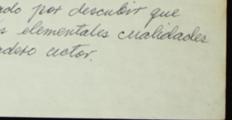 ado por descubrir que
s elementales cualidades
adero actor.